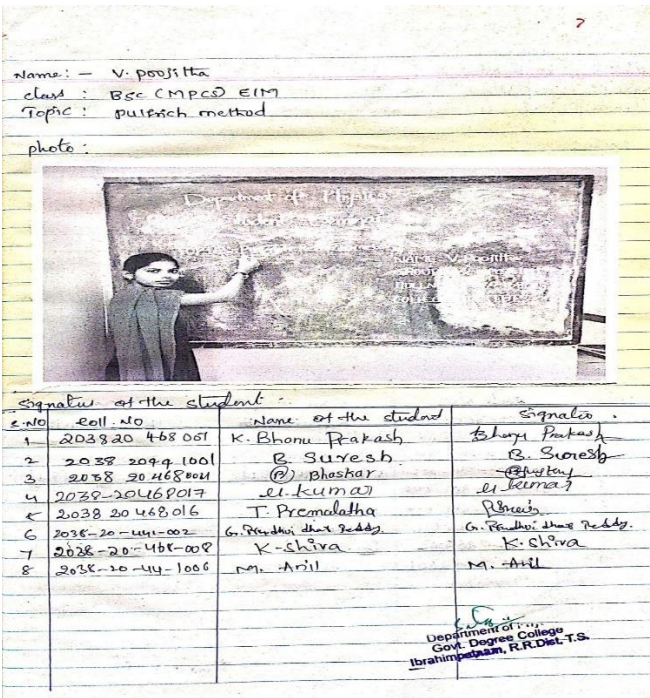 7
Name: - V. poojitha
class : BSC (MPCS) E/M
Topic : pulfrich method
photo :
Department of Physics
Student seminar
NAME V. Poojitha
signatus of the student :
S.NO Roll. NO Name of the student signatis .
1 203820 468 001 K. Bhanu Prakash Bhanu Prakash
2 2038 2044 1001 B. Suresh B. Suresh
3 2038 20468004 B Bhaskar
4 2038-20468017 U. kumar U. kumar
5 2038 20 468016 T. Premalatha
6 2038-20-441-002 G. Prudhvi dhar Reddy. G. Prudhvi dhar Reddy.
7 2038-20-468-008 K-shiva K. shiva
8 2038-20-44-1006 M. Anil M. Anil
Department of
Govt. Degree College
Ibrahimpatnam, R.R.Dist. T.S.